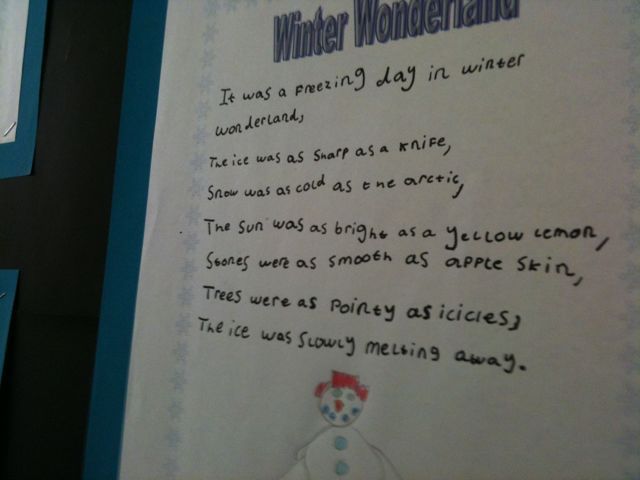 Winter Wonderland
It was a freezing day in winter
wonderland,
The ice was as sharp as a knife,
Snow was as cold as the arctic,
The sun was as bright as a yellow lemon,
Stones were as smooth as apple skin,
Trees were as pointy as icicles,
The ice was slowly melting away.